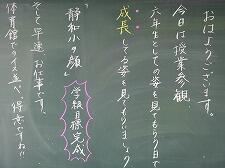 おはようございます。
今日は授業参観。
六年生としての姿を見てもらう日です。
成長してる姿を見てもらいましょう
「静和小の顔」
学級目標完成
そして早速、お仕事です。
体育館でのイス並べ、得意ですね!!